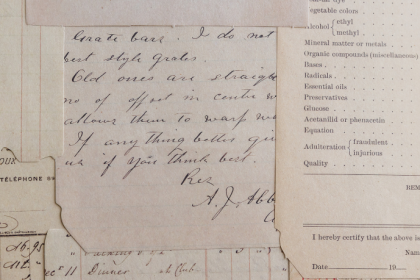 Grate bars. I do not
best style grates.
Old ones are straight
no of offset in centre w
allows them to warp
If any thing better giv
us if you think best.
Res
A. J. Abb
OUR
TÉLÉPHONE
46.95
11 Dinner Club
Vegetable colors
Alcohol { ethyl
methyl
Mineral matter or metals
Organic compounds (miscellaneous)
Bases
Radicals
Essential oils
Preservatives
Glucose
Acetanilid or phenacetin
Equation
Adulteration { fraudulent
injurious
Quality
REM
I hereby certify that the above is
Date 19